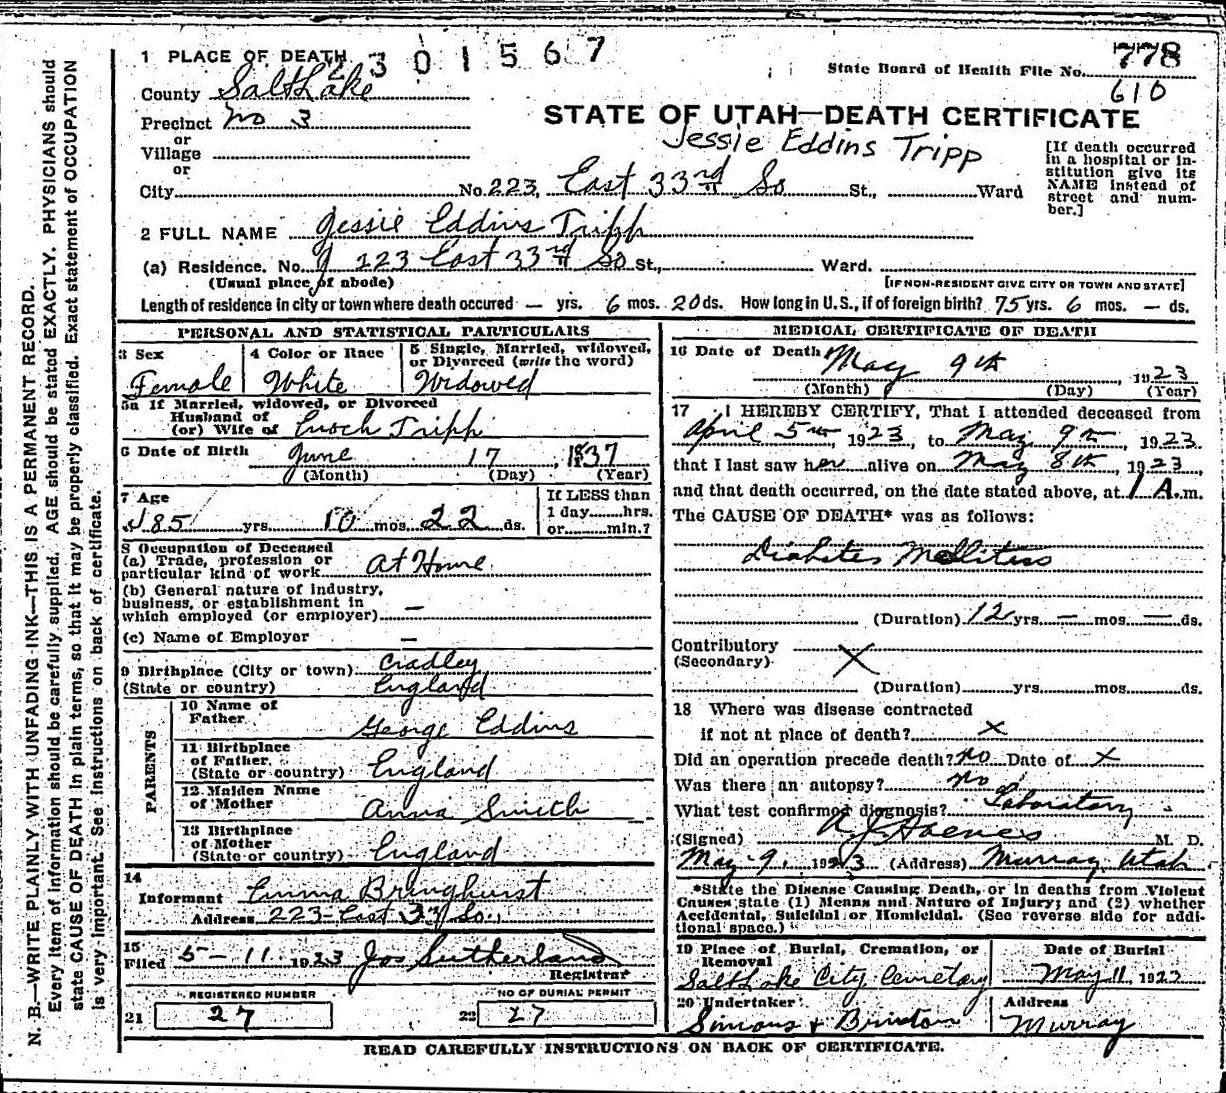 2301567
1 PLACE OF DEATH
State Board of Health File No. 778
610
County Salt Lake
Precinct No 3
or
Village
or
City No. 223, East 33rd So St., Ward
STATE OF UTAH—DEATH CERTIFICATE
Jessie Eddins Tripp
[If death occurred in a hospital or institution give its NAME instead of street and number.]
2 FULL NAME Jessie Eddins Tripp
(a) Residence. No. 223 East 33rd So St., Ward.
(Usual place of abode)
[IF NON-RESIDENT GIVE CITY OR TOWN AND STATE]
Length of residence in city or town where death occured — yrs. 6 mos. 20 ds. How long in U.S., if of foreign birth? 75 yrs. 6 mos. — ds.
PERSONAL AND STATISTICAL PARTICULARS
3 Sex
Female
4 Color or Race
White
5 Single, Married, widowed, or Divorced (write the word)
Widowed
5a If Married, widowed, or Divorced
Husband of
(or) Wife of Enoch Tripp
6 Date of Birth June 17, 1837
(Month) (Day) (Year)
7 Age
85 yrs. 10 mos. 22 ds.
If LESS than
1 day......hrs.
or.........min.?
8 Occupation of Deceased
(a) Trade, profession or
particular kind of work At Home
(b) General nature of industry,
business, or establishment in
which employed (or employer) —
(c) Name of Employer —
9 Birthplace (City or town) Cradley
(State or country) England
PARENTS
10 Name of
Father George Eddins
11 Birthplace
of Father
(State or country) England
12 Maiden Name
of Mother Anna Smith
13 Birthplace
of Mother
(State or country) England
14
Informant Emma Bringhurst
Address 223 East 33 So.
15
Filed 5-11 1923 Jos Sutherland
Registrar
REGISTERED NUMBER
21 27
NO OF BURIAL PERMIT
22 27
MEDICAL CERTIFICATE OF DEATH
16 Date of Death May 9th, 1923
(Month) (Day) (Year)
17 I HEREBY CERTIFY, That I attended deceased from
April 5th, 1923, to May 9th, 1923
that I last saw her alive on May 8th, 1923
and that death occurred, on the date stated above, at 1 A.m.
The CAUSE OF DEATH* was as follows:
Diabetes Mellitus
(Duration) 12 yrs. — mos. — ds.
Contributory
(Secondary) X
(Duration) yrs. mos. ds.
18 Where was disease contracted
if not at place of death? X
Did an operation precede death? no Date of X
Was there an autopsy? no
What test confirmed diagnosis? Laboratory
(Signed) M. D.
May 9, 1923 (Address) Murray Utah
*State the Disease Causing Death, or in deaths from Violent
Causes state (1) Means and Nature of Injury; and (2) whether
Accidental, Suicidal or Homicidal. (See reverse side for addi-
tional space.)
19 Place of Burial, Cremation, or
Removal
Salt Lake City Cemetery
Date of Burial
May 11 1923
20 Undertaker
Simons &
Address
Murray
READ CAREFULLY INSTRUCTIONS ON BACK OF CERTIFICATE.
N. B.—WRITE PLAINLY WITH UNFADING INK—THIS IS A PERMANENT RECORD.
Every item of information should be carefully supplied. AGE should be stated EXACTLY. PHYSICIANS should
state CAUSE OF DEATH in plain terms, so that it may be properly classified. Exact statement of OCCUPATION
is very important. See instructions on back of certificate.